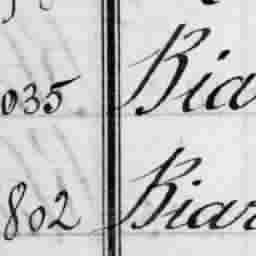 035 Bia
802 Biar